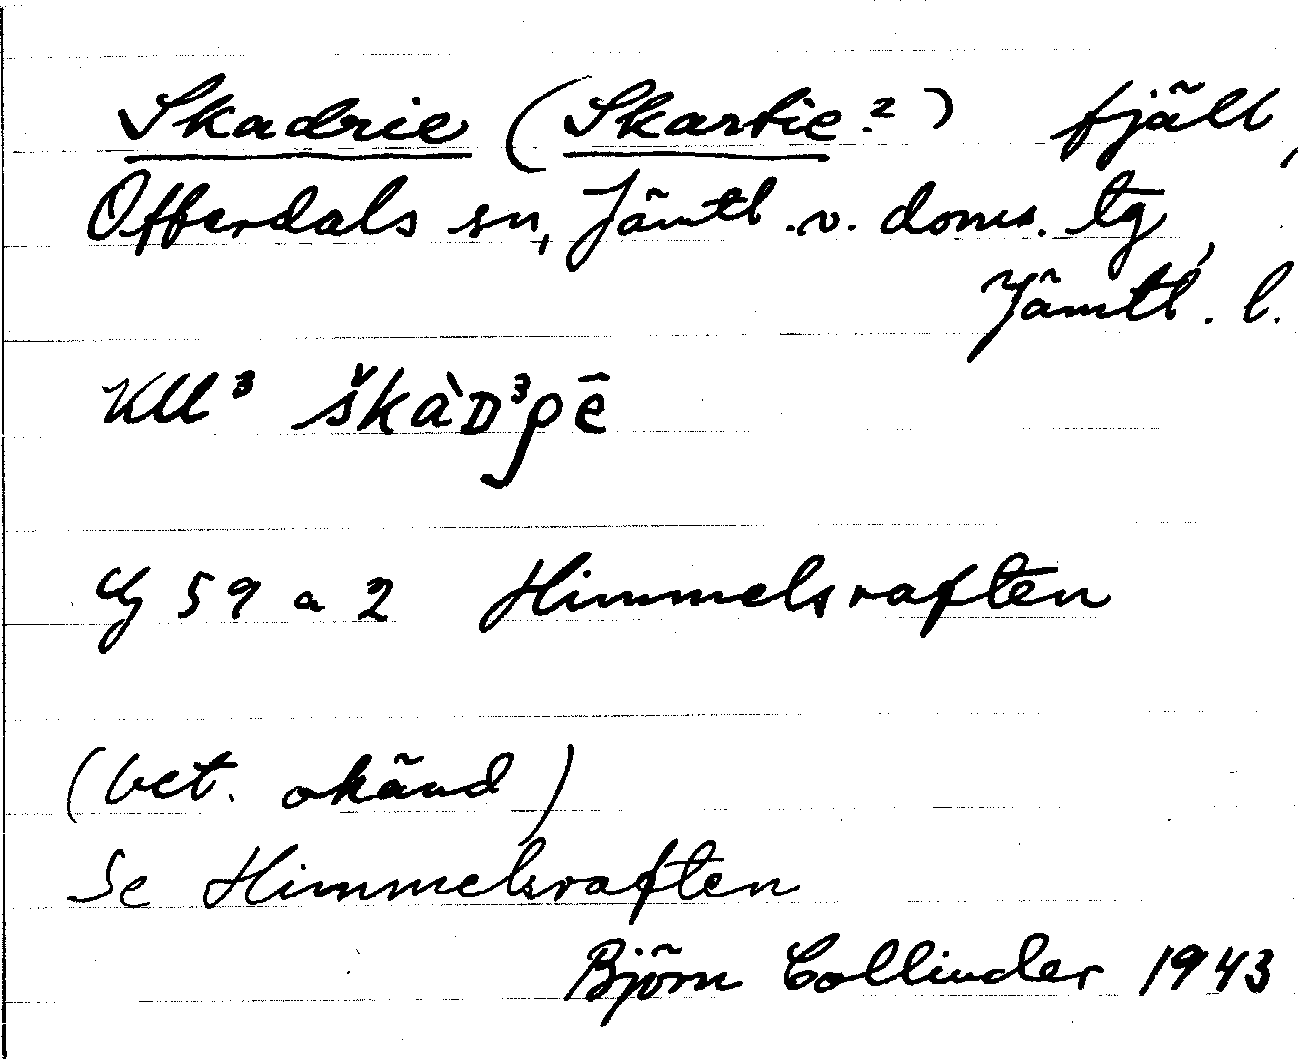 Skadrie (Skartie?) fjäll,
Offerdals sn, Jämtl. v. doms. tg,
Jämtl. l.
KU³ škàD³ρē
Gg 59 a 2 Himmelsraften
(bet. okänd)
Se Himmelsraften
Björn Collinder 1943